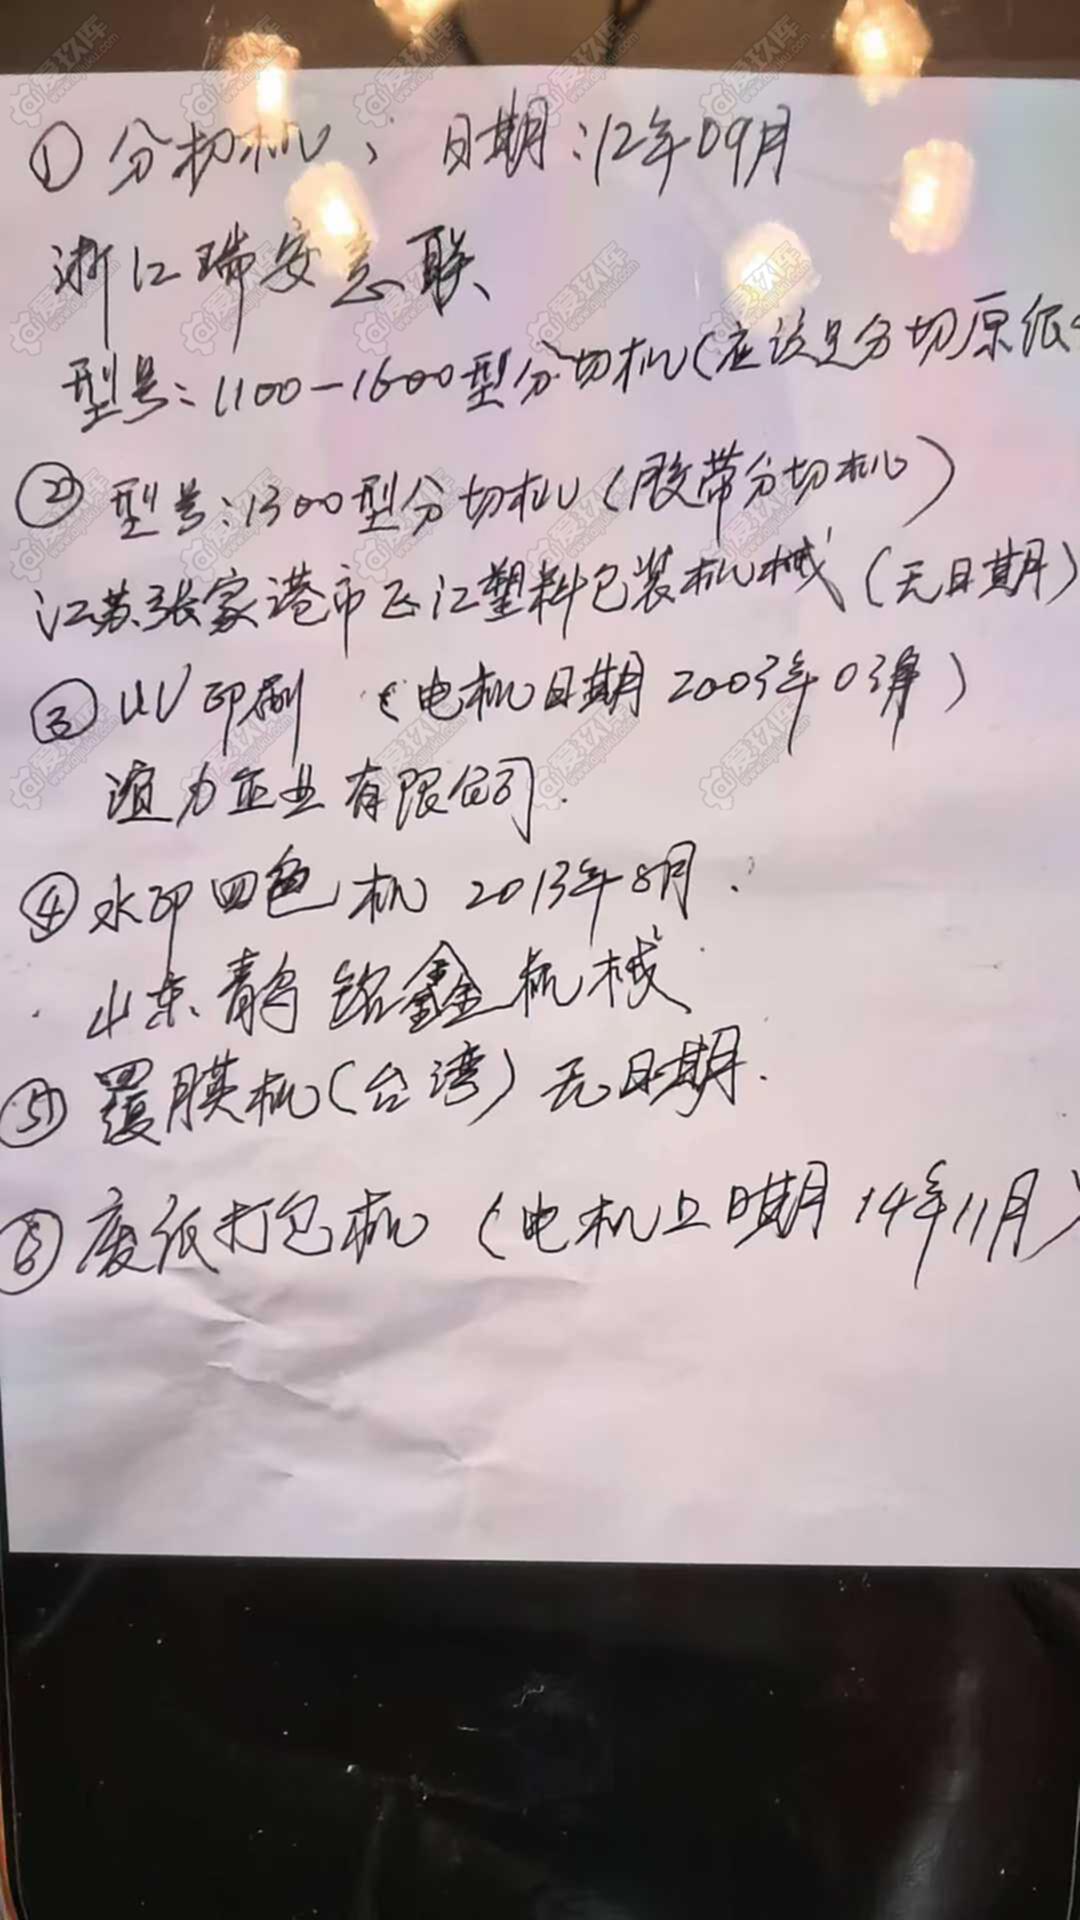 ①分切机; 日期:12年09月
浙江瑞安志联
型号:1100-1600型分切机(应该是分切原纸
②型号:1300型分切机(胶带分切机)
江苏张家港市飞江塑料包装机械(无日期)
③UV印刷 (电机日期2003年03月)
滇力企业有限公司.
④水印四色机 2013年8月.
山东青岛铭鑫机械
⑤覆膜机(台湾)无日期.
⑥废纸打包机 (电机上日期14年11月)
爱玖库
www.aijiuku.com